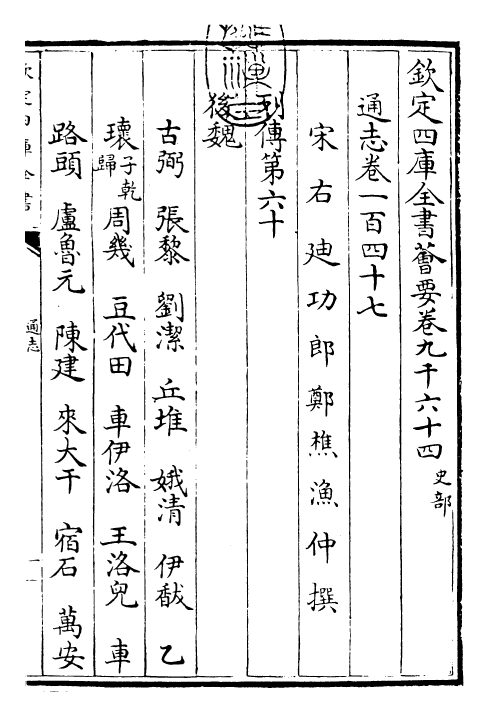 欽定四庫全書薈要卷九千六十四 史部
通志卷一百四十七
宋右迪功郎鄭樵漁仲撰
列傳第六十
後魏
古弼 張黎 劉潔 丘堆 娥清 伊馛 乙
瓌 子乾歸 周幾 豆代田 車伊洛 王洛兒 車
路頭 盧魯元 陳建 來大干 宿石 萬安
欽定四庫全書
通志